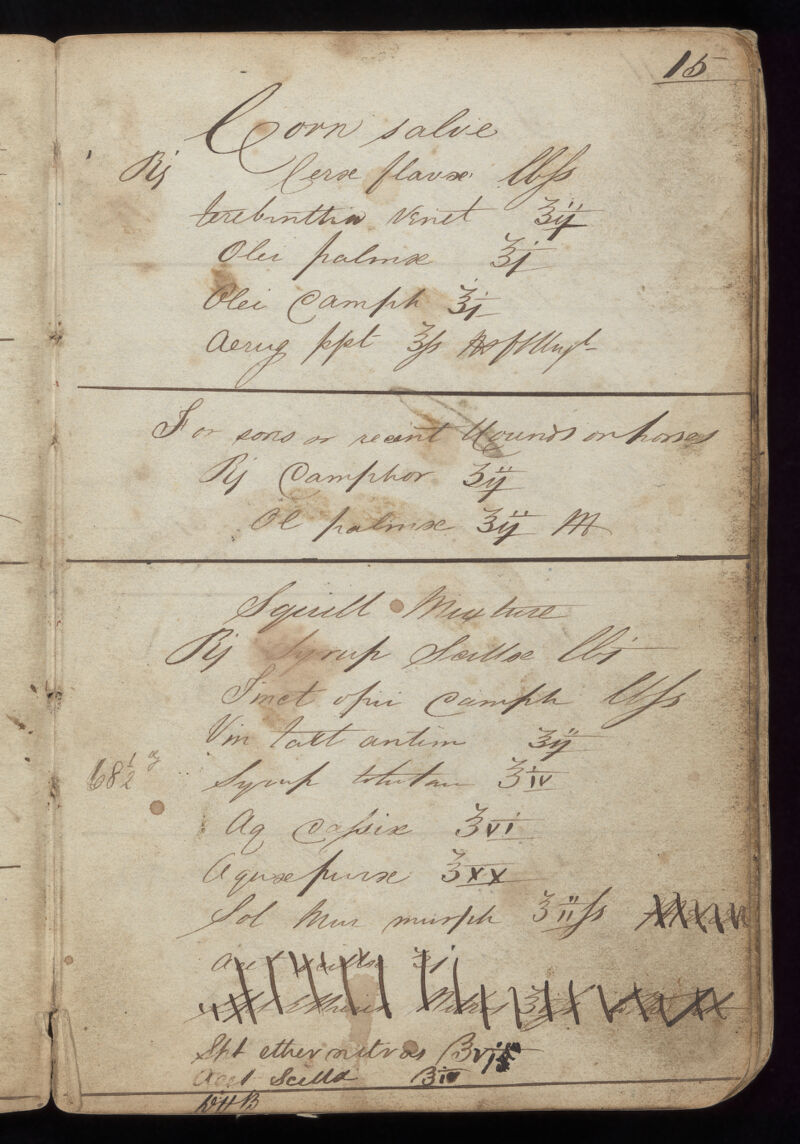 15
Corn salve
Rj Ceræ flavæ lbſs
terebinthin venet ʒij
Olei palmæ ʒj
Olei Camph ʒj
Aerug ppt ʒſs
For sors or recent Wounds on horses
Rj Camphor ʒij
Ol palmæ ʒij M
Squill Mixture
Rj Syrup Scillæ lbj
Tinct opii Camph lbſs
Vin tart antim ʒij
68½ Syrup tolutan ʒiv
Aq Capsix ʒvi
Aquæ puræ ʒxx
Sol Mur morph ʒiiſs
Acet scillæ ʒj
Spt ether nitros ʒvj
Acet Scilla ʒiv
WHB